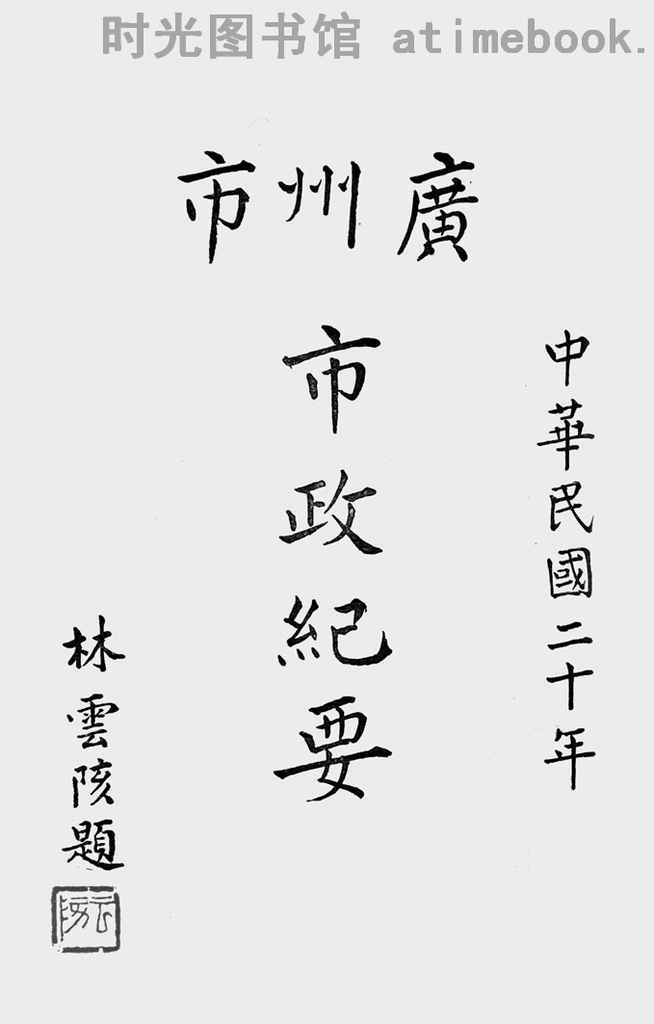 时光图书馆 atimebook.
廣州市
中華民國二十年
市政紀要
林雲陔題
云陔